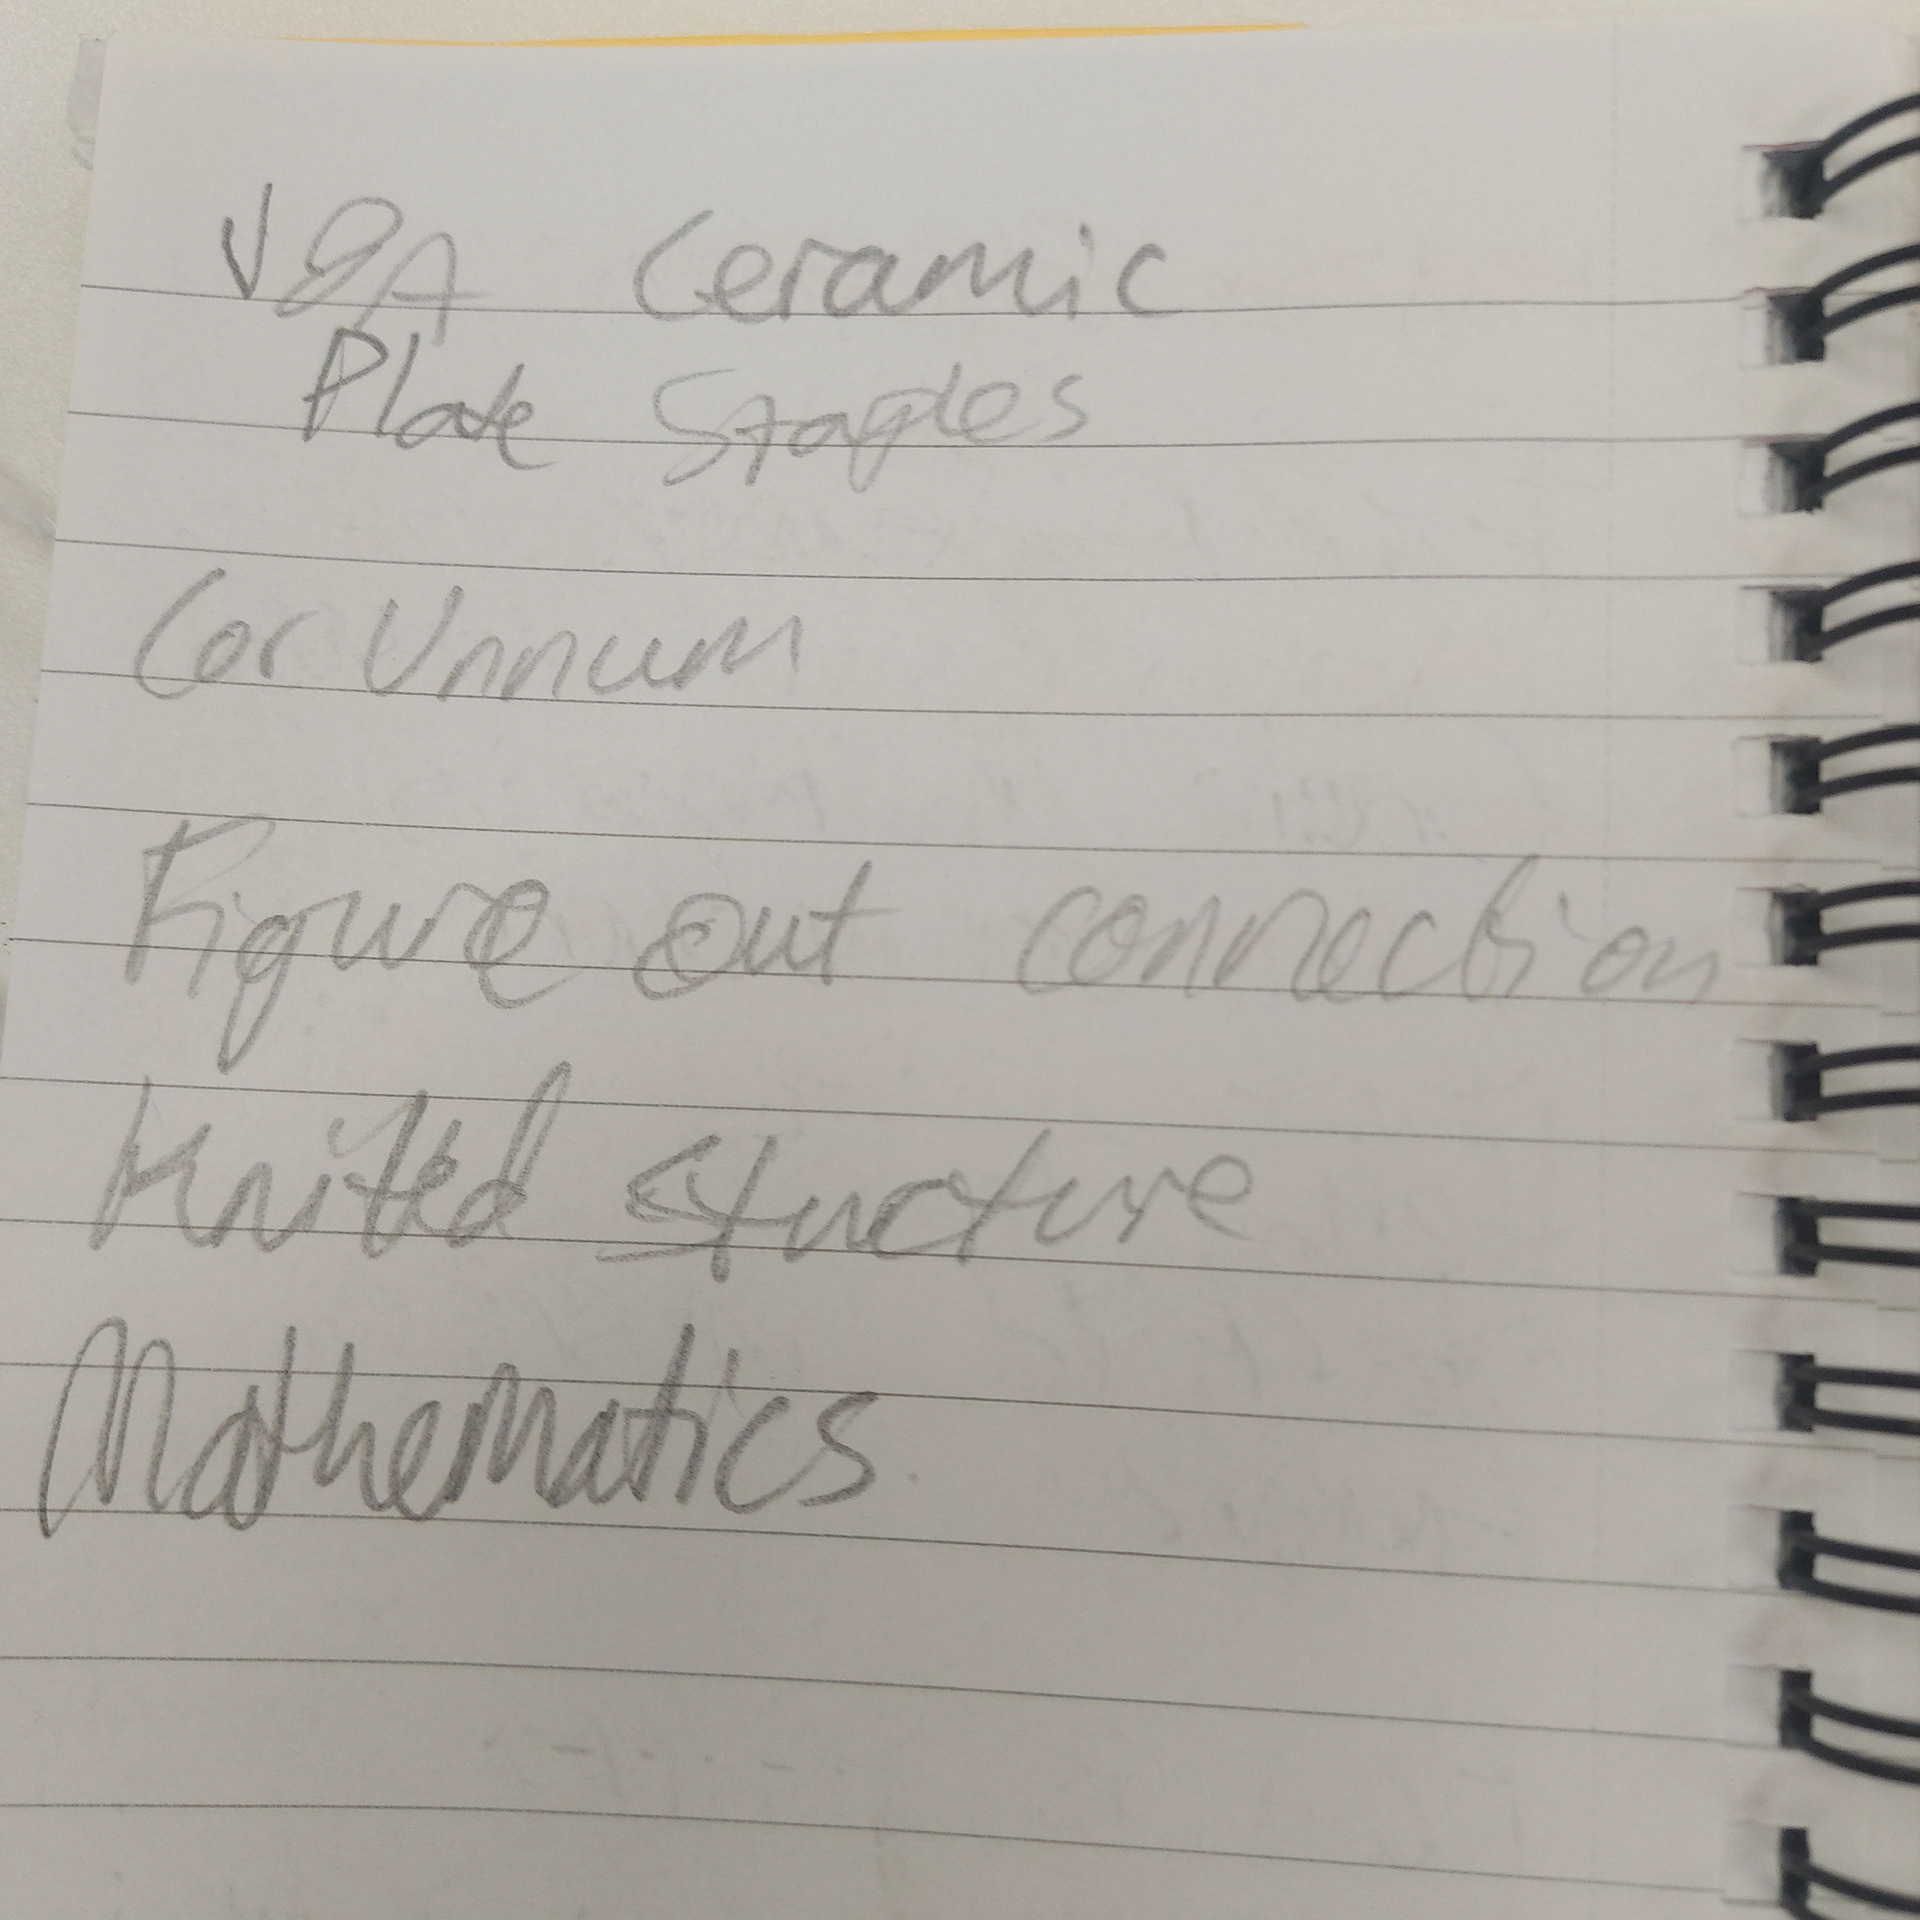 V&A Ceramic
Plate Staples
Cor Unnum
Figure out connection
Knitted Structure
Mathematics